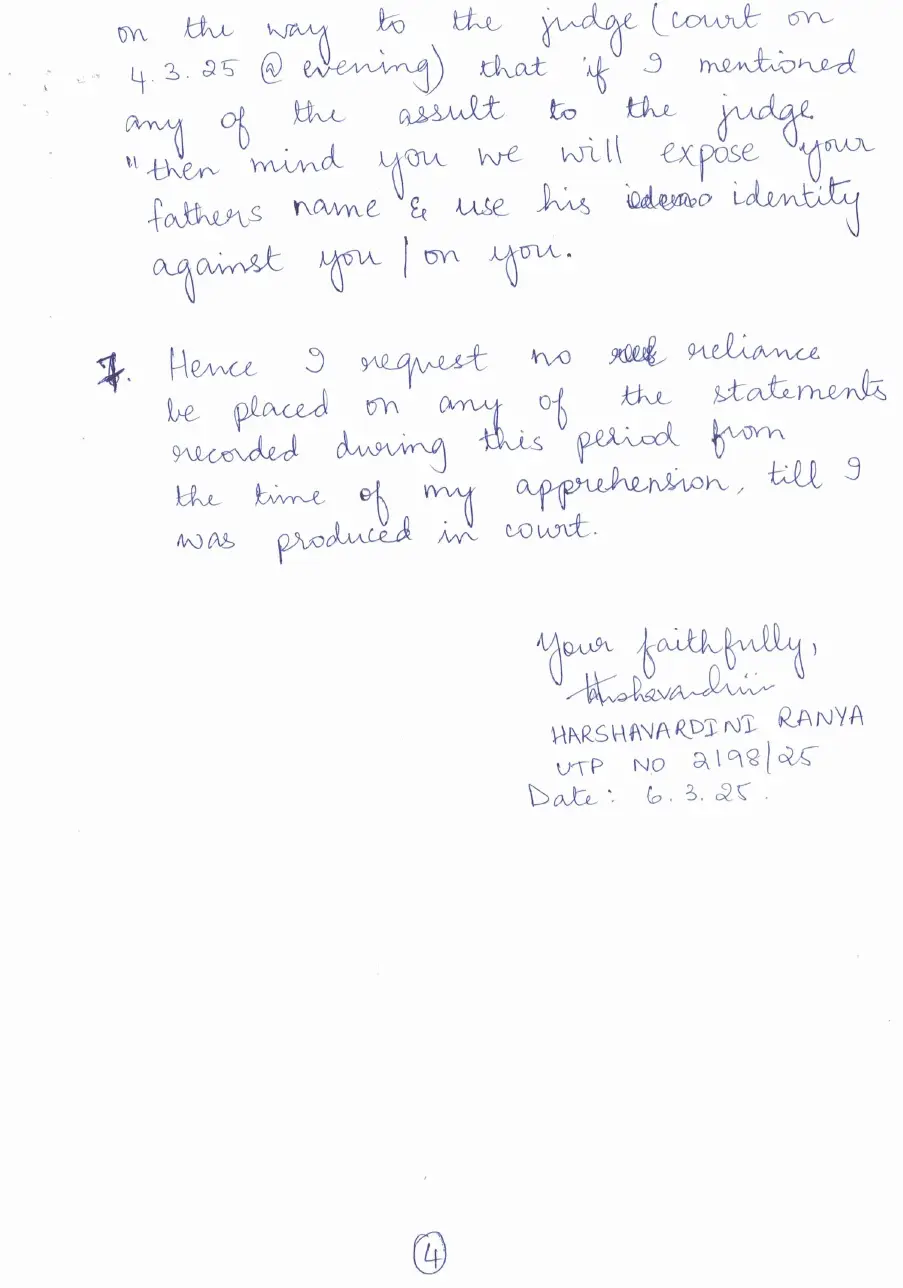 on the way to the judge (court on
4.3.25 @ evening) that if I mentioned
any of the assult to the judge
"then mind you we will expose your
fathers name & use his identity
against you / on you.
7. Hence I request no reliance
be placed on any of the statements
recorded during this period from
the time of my apprehension, till I
was produced in court.
Your faithfully,
Harshavardini
HARSHAVARDINI RANYA
UTP NO 2198/25
Date: 6.3.25.
4